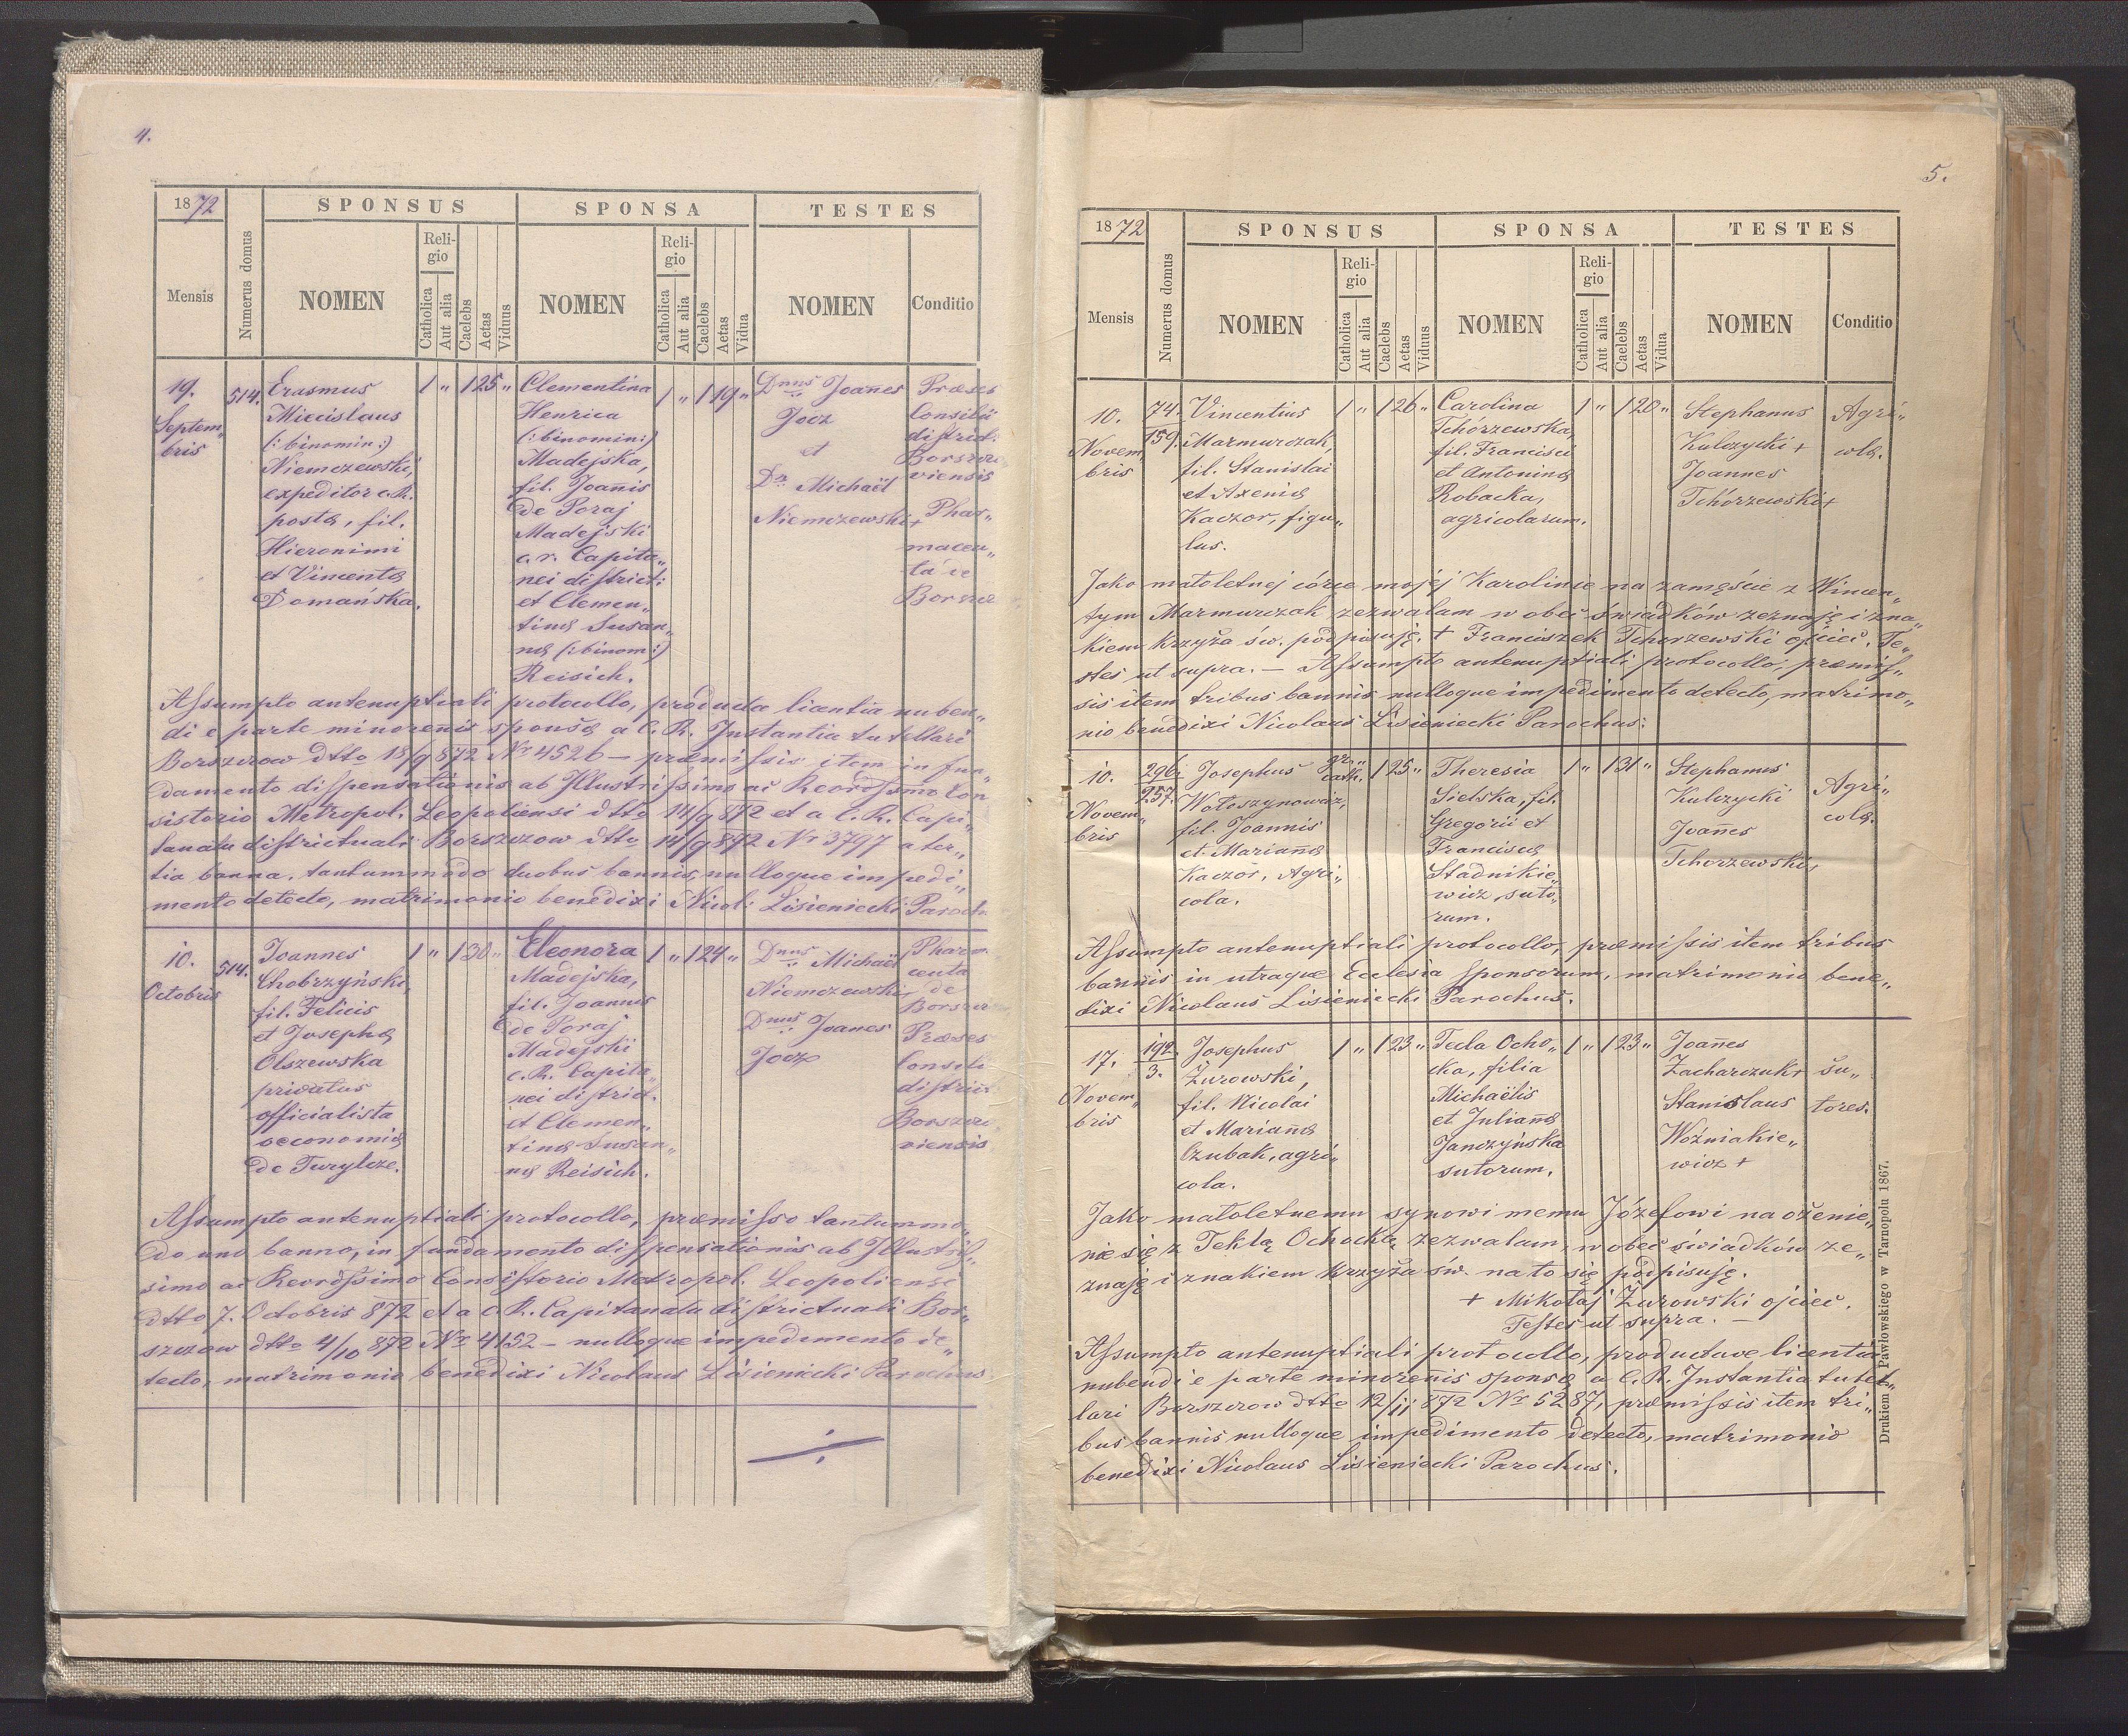 4.
1872
SPONSUS
SPONSA
TESTES
Mensis
Numerus domus
NOMEN
Religio
Catholica
Aut alia
Caelebs
Aetas
Viduus
NOMEN
Religio
Catholica
Aut alia
Caelebs
Aetas
Vidua
NOMEN
Conditio
19.
Septem„
bris
514.
Erasmus
Miecislaus
(:binomin:)
Niemczewski,
expeditor c.R.
postæ, fil.
Hieronimi
et Vincentæ
Domańska.
1 „ 1 25 „
Clementina
Henrica
(:binomin:)
Madejska,
fil. Joañis
de Poraj
Madejski
c.r. Capita„
nei district:
et Clemen„
tinæ Susan„
næ (:binom:)
Reisich.
1 „ 1 19 „
Dnus Joañes
Jocz
et
Dn Michaël
Niemczewski +
Præses
Consilii
district:
Borszczo
viensis
Phar„
maceu„
ta ie
Borszcz
Assumpto antenuptiali protocollo, producta licentia nuben„
di e parte minoreñis sponsæ a C. R. Instantia tutellari
Borszczow dtto 18/9 872 Nr 4526 – præmissis item in fun„
damento dispensationis ab Illustrissimo ac Reverdssmo Con
sistorio Metropol. Leopoliensi dtto 14/9 872 et a C. R. Capi„
tanatu districtuali Borszczow dtto 14/9 872 Nr 3797 a ter„
tia banna, tantummodo duobus bannis, nulloque impedi„
mento detecto, matrimonio benedixi Nicol: Lisieniecki Paroch
10.
Octobris
514.
Joannes
Chobrzyński,
fil. Felicis
et Josephæ
Olszewska
privatus
officialista
oeconomiæ
de Turylcze.
1 „ 1 30 „
Eleonora
Madejska,
fil. Joannis
de Poraj
Madejski
c. R. Capita„
nei district.
et Clemen„
tinæ Susan„
næ Reisich.
1 „ 1 24 „
Dnus Michaël
Niemczewski,
Dnus Joanes
Jocz
Pharma
ceuta
de
Borszcz
Præses
Consili
district
Borszczo
viensis
Assumpto antenuptiali protocollo, præmisso tantummo„
do uno banno, in fundamento dispensationis ab Illustris„
simo ac Reverdissimo Consistorio Metropol. Leopoliensi
dtto 7. Octobris 872 et a c. R. Capitanatu districtuali Bor„
szczow dtto 4/10 872 Nr 4152 – nulloque impedimento de„
tecto, matrimonio benedixi Nicolaus Lisieniecki Parochus
5.
1872
SPONSUS
SPONSA
TESTES
Mensis
Numerus domus
NOMEN
Religio
Catholica
Aut alia
Caelebs
Aetas
Viduus
NOMEN
Religio
Catholica
Aut alia
Caelebs
Aetas
Vidua
NOMEN
Conditio
10.
Novem„
bris
74.
159.
Vincentius
Marmurczak,
fil. Stanislai
et Axeniæ
Kaczor, figu„
lus.
1 „ 1 26 „
Carolina
Tchórzewska,
fil. Francisci
et Antoninæ
Robacka,
agricolarum.
1 „ 1 20 „
Stephanus
Kulczycki +
Joannes
Tchórzewski +
Agri„
colæ.
Jako małoletnej córce mojej Karolinie na zamęście z Wincen„
tym Marmurczak zezwalam w obec świadków zeznaję i zna„
kiem Krzyża św. podpisuję. + Franciszek Tchorzewski ojciec. Te„
stes ut supra. – Assumpto antenuptiali protocollo, præmis„
sis item tribus bannis nulloque impedimento detecto, matrimo„
nio benedixi Nicolaus Lisieniecki Parochus:
10.
Novem„
bris
296.
257.
Josephus
Wołoszynowicz,
fil. Joannis
et Mariañæ
Kaczor, Agri„
cola.
gr.„
cath. 1 25 „
Theresia
Sielska, fil.
Gregorii et
Franciscæ
Stadnikie„
wicz, suto„
rum.
1 „ 1 31 „
Stephanus
Kulczycki
Joañes
Tchorzewski,
Agri„
colæ.
Assumpto antenuptiali protocollo, præmissis item tribus
bannis in utraque Ecclesia Sponsorum, matrimonio bene„
dixi Nicolaus Lisieniecki Parochus.
17.
Novem„
bris
192.
3.
Josephus
Żurowski,
fil. Nicolai
et Mariañæ
Czubak, agri„
cola.
1 „ 1 23 „
Tecla Ocho„
cka, filia
Michaëlis
et Juliañæ
Janczyńska
sutorum.
1 „ 1 23 „
Joañes
Zacharczuk +
Stanislaus
Woźniakie„
wicz +
su„
tores.
Jako małoletnemu synowi memu Józefowi na ożenie„
nie się z Teklą Ochocką zezwalam, w obec świadków ze„
znaję i znakiem Krzyża św. na to się podpisuję.
+ Mikołaj Żurowski ojciec.
Testes ut supra. –
Assumpto antenuptiali protocollo, productave licentia
nubendi e parte minoreñis sponsæ a C. R. Instantia tutel„
lari Borszczow dtto 12/11 872 Nr 5287, præmissis item tri„
bus bannis nulloque impedimento detecto, matrimonio
benedixi Nicolaus Lisieniecki Parochus.
Drukiem Pawłowskiego w Tarnopolu 1867.